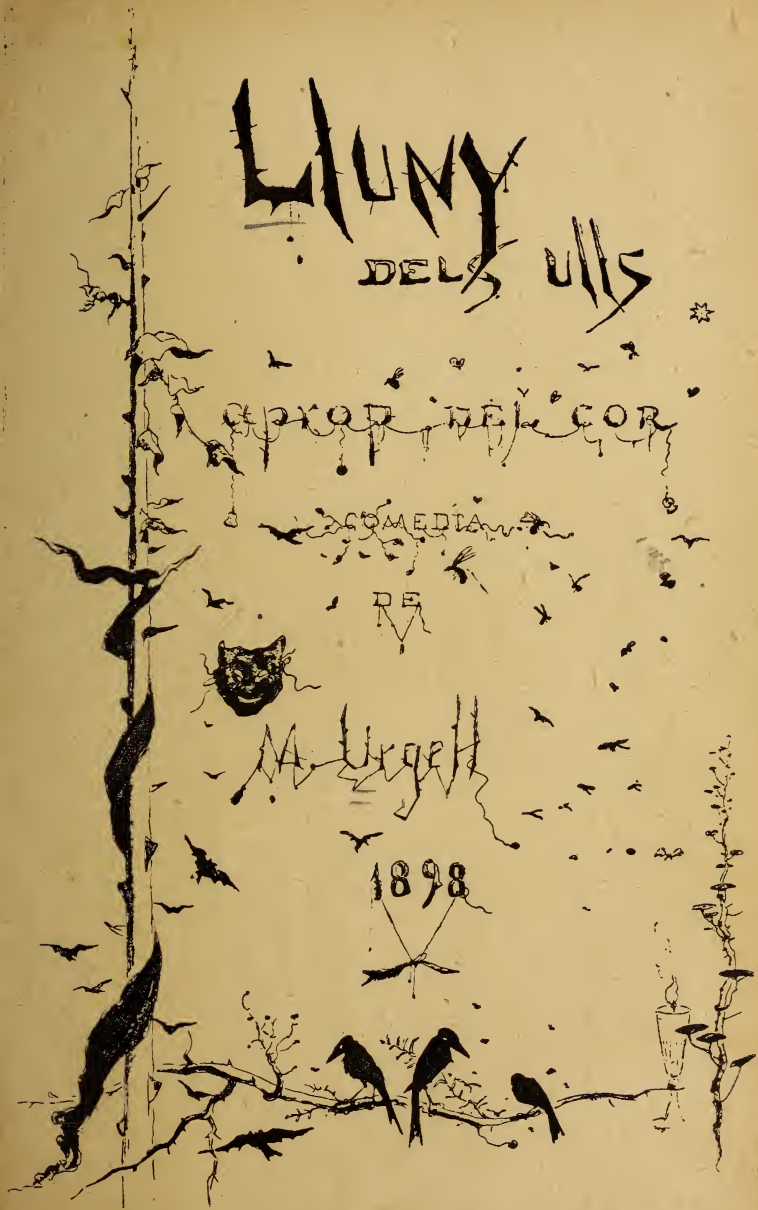 Lluny
DELS ullS
aprop DEL COR
COMEDIA
DE
M. Urgell
1898